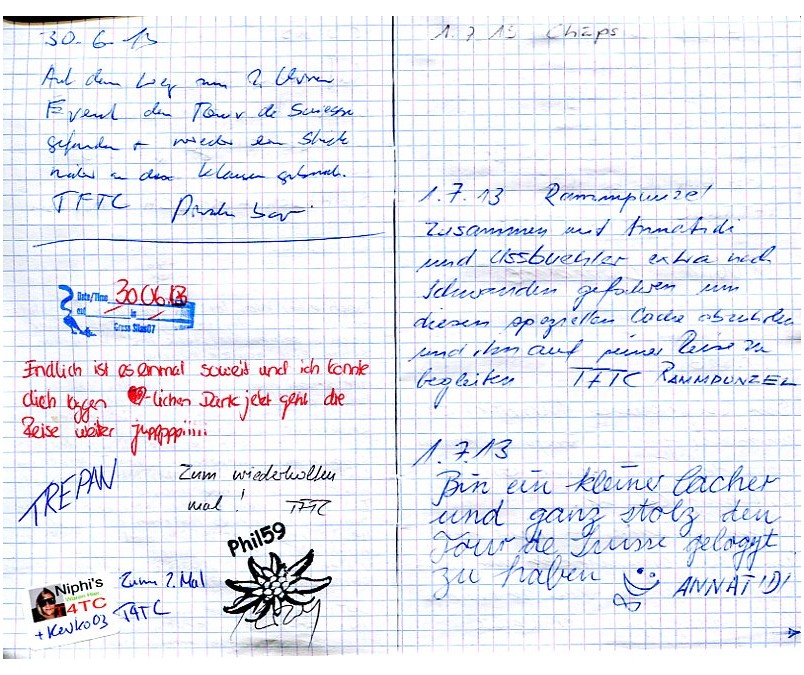 30.6.13
Auf dem Weg zum 2.
Event den Tour de Suisse
gefunden + wieder ein Stück
näher an den Klausen gebracht.
TFTC
Date/Time 30.06.13
Gross Slas07
Endlich ist es einmal soweit und ich konnte
dich loggen ❤-lichen Dank jetzt geht die
Reise weiter juppppiiiii
TREPAN
Zum wiederholten
mal! TFTC
Phil59
Niphi's
Waren Hier
4TC
+ Keuko03
Zum 2. Mal
TFTC
1.7.13 Chäps
1.7.13 Rammpunzel
Zusammen mit Annatidi
und Ussbuehler extra nach
Schwanden gefahren um
diesen speziellen Cache abzuholen
und ihn auf seiner Reise zu
begleiten TFTC RAMMPUNZEL
1.7.13
Bin ein kleiner Cacher
und ganz stolz den
Tour de Suisse geloggt
zu haben ANNATIDI